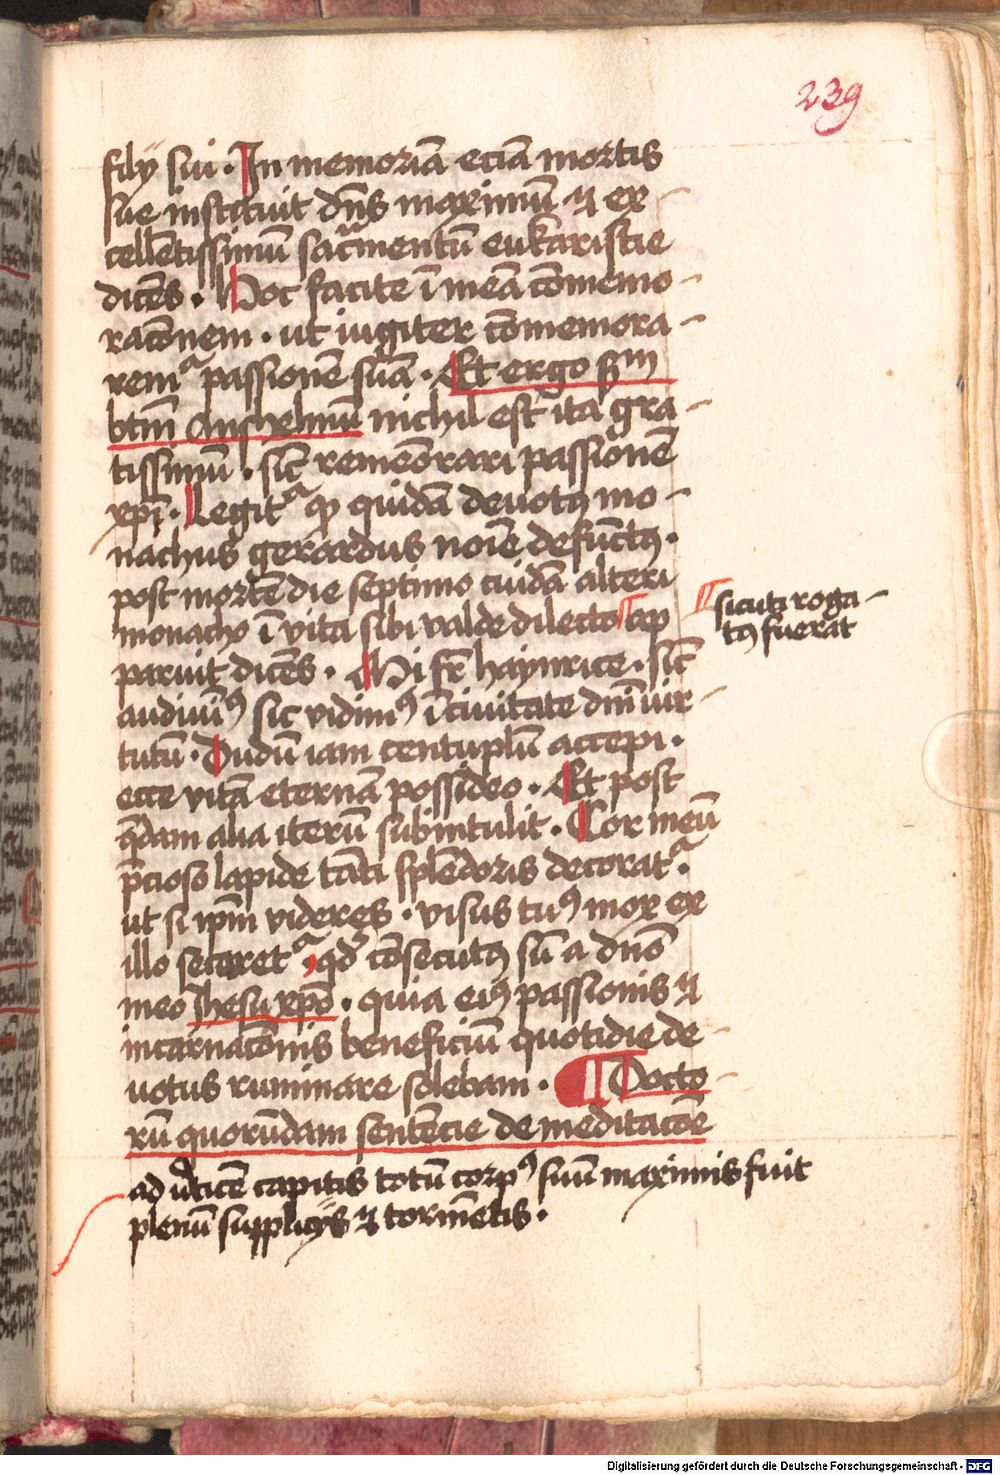 239
filÿ sui . In memoriā eciā mortis
sue instituit dn̄s maximū et ex-
cellētissimū sacr̄mentū eukaristie
dicēs . Hoc facite ī meā cōmemo-
racōnem . ut iugiter cōmemora-
remr passionē suā . Et ergo scd̄m
btm̄ Anshelmū nichil est ita gra-
tissimū . sic̄ rememōrari passionē
xpī . Legitr qz quidā deuotꝰ mo-
nachus gerardus noīe defūctꝰ .
post mortē die septimo cuidā alteri
monacho ī vita sibi valde dilecto ap
sicuti roga-
tꝰ fuerat
paruit dicēs . Mi fr̄ haynrice . sic̄
audiuimꝰ sic vidimꝰ ī ciuitate dnī vir-
tutū . Dudū iam centuplū accepi .
ecce vitā eternā possideo . Et post
q̄dam alia iterū subintulit . Cor meū
p̄cioso lapide tāti splēdoris decoratr .
ut si ipm̄ videres . visus tuꝰ mox ex
illo secaretr , qd̄ cōsecutꝰ sū a dnō
meo Jhesu xpō . quia eiꝰ passionis et
incarnacōnis beneficiū quotidie de-
uotus ruminare solebam . ¶ Docto-
rū quorūdam sentēcie de meditacōe
ad v̄ticē capitis totū corpꝰ suū maximis fuit
plenū supplicÿs et tormētis .
Digitalisierung gefördert durch die Deutsche Forschungsgemeinschaft - DFG